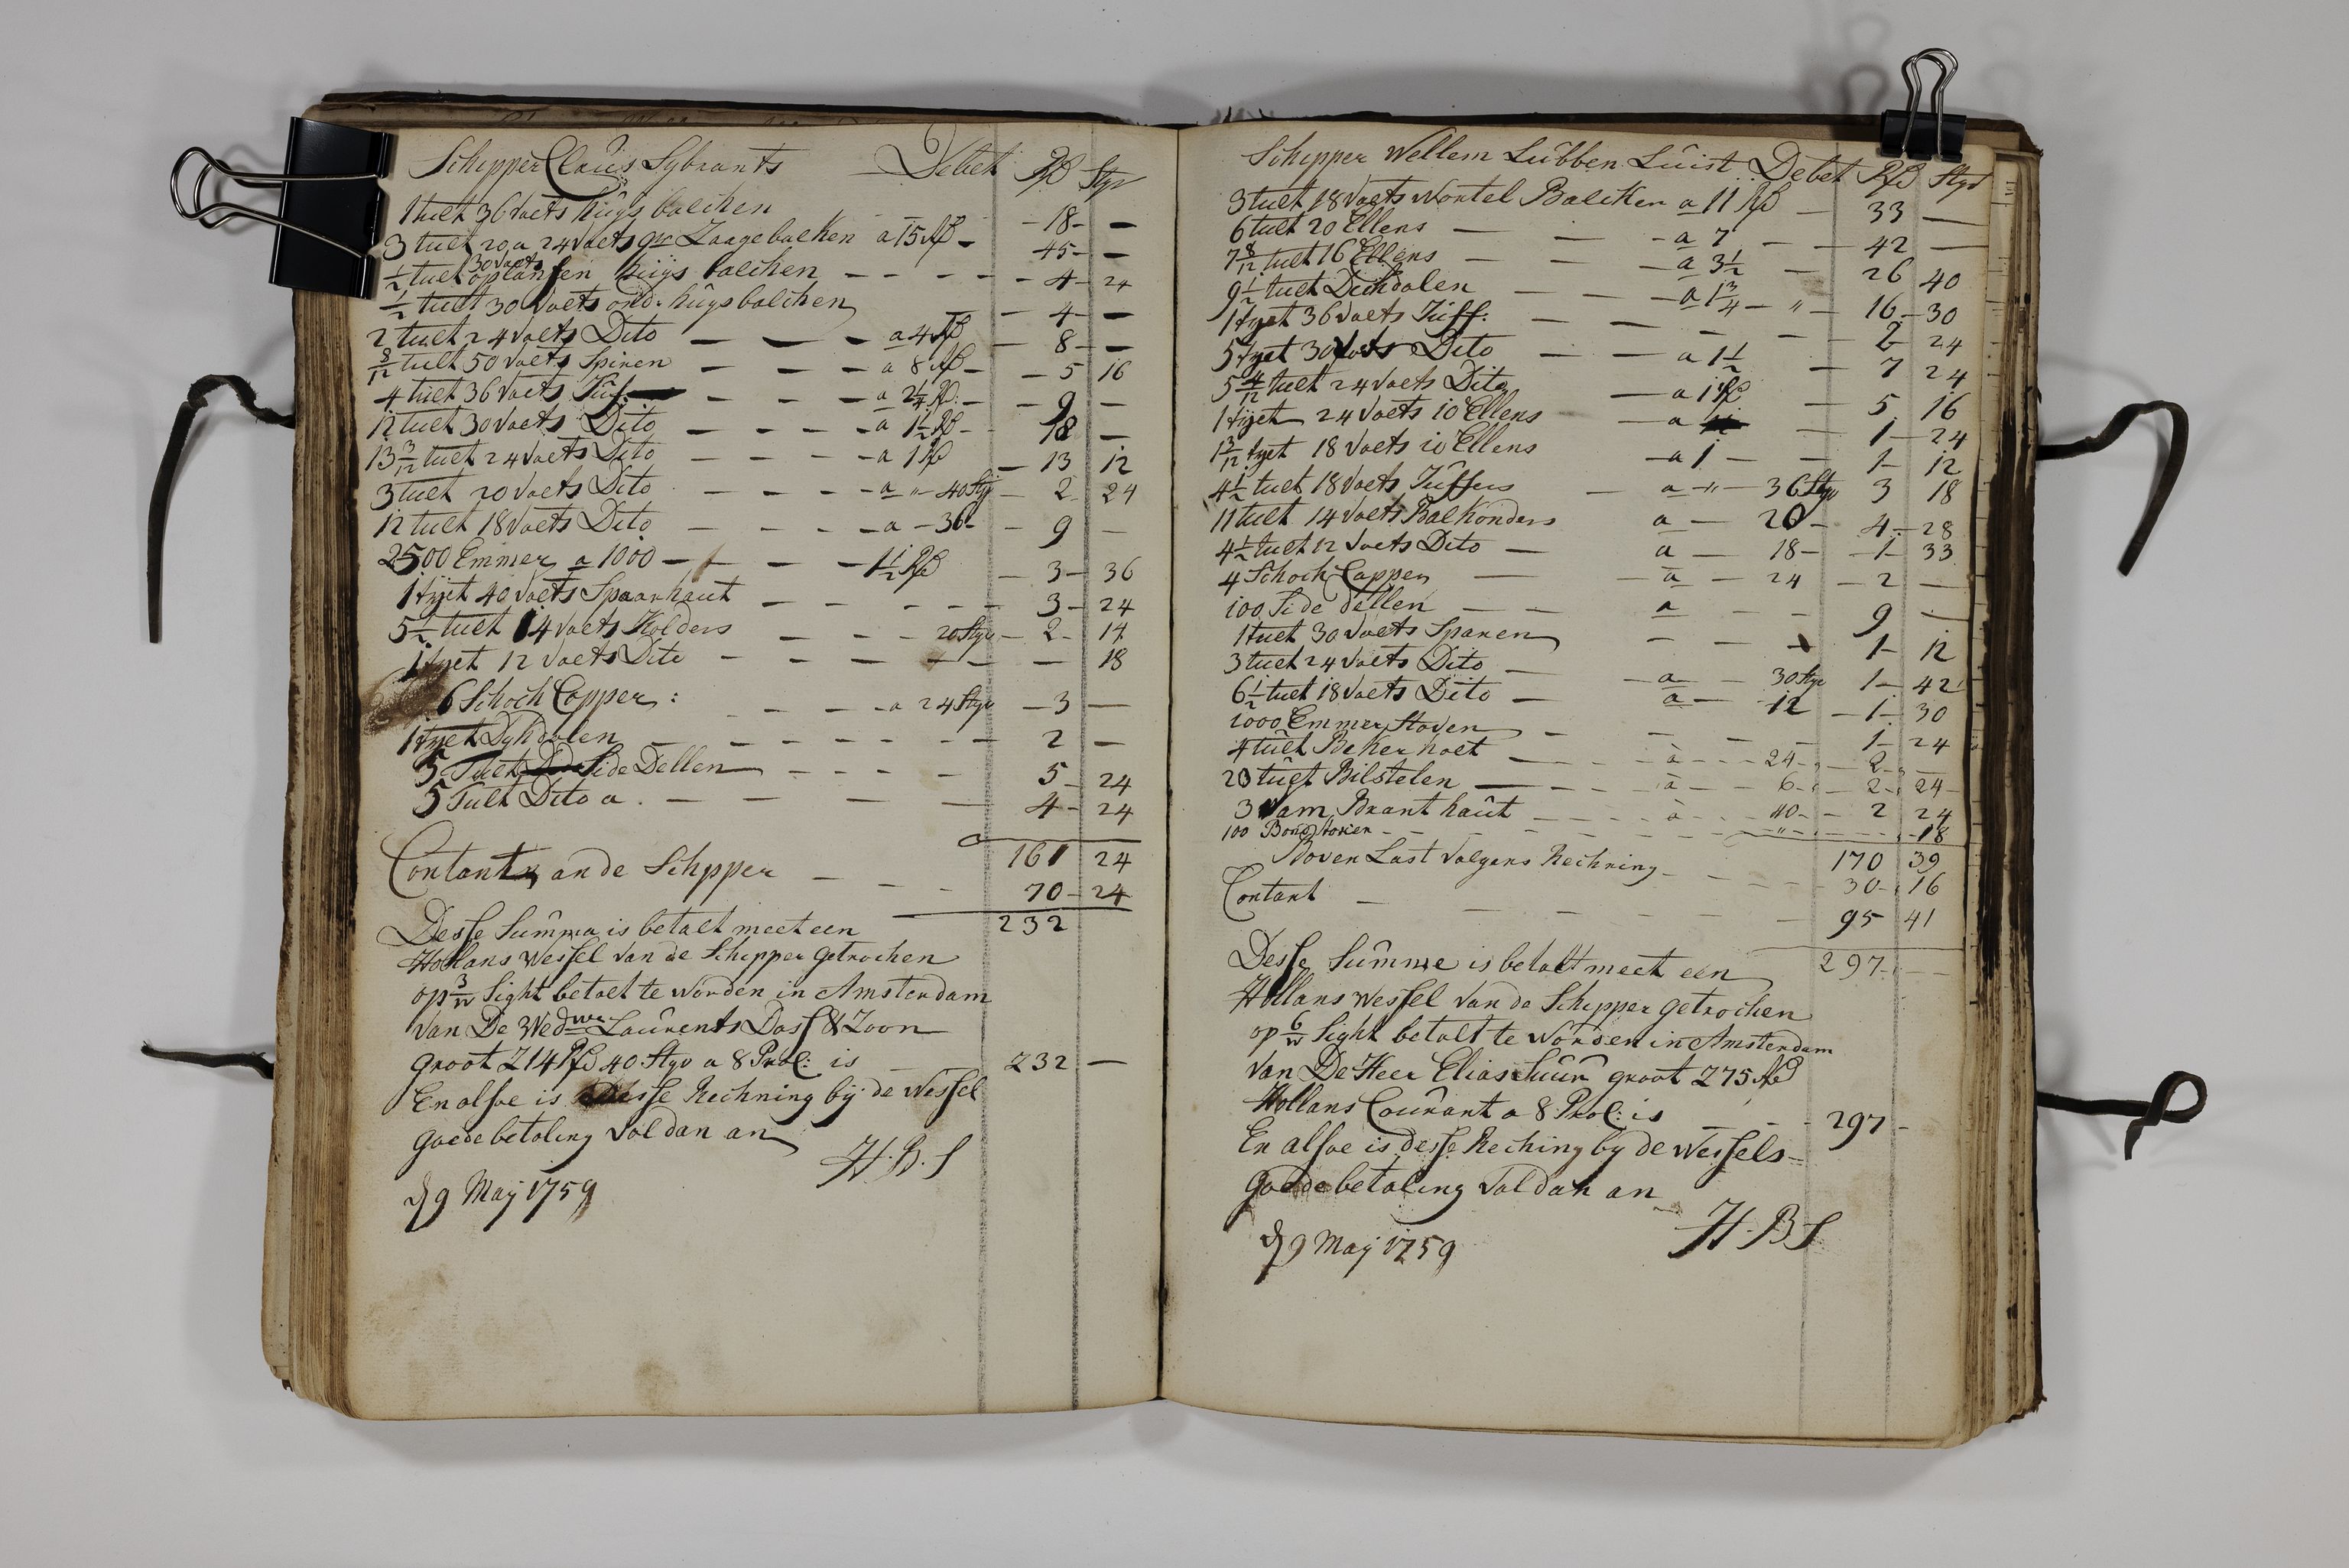 Schipper Claus Sybrants Debet Rß Styv
1 tult 36 Voets huys balcken - 18 - —
3 tult 20 a 24 Voets gr Zaagebalken a 15 Rß - 45 - —
30 Voets
1/2 tult oplansen huijs balcken - - - - 4 - 24
1/2 tult 30 Voets ord. huys balcken - 4 - —
2 tult 24 Voets Dito — — - a 4 Rß - 8 - —
8/12 tult 50 Voets Spiren - - - a 8 Rß - 5 16
4 tult 36 Voets Juf - - - a 2 1/4 Rß - 9 —
12 tult 30 Voets Dito - - - a 1 1/2 Rß - 18 —
13 3/12 tult 24 Voets Dito - - - a 1 Rß - 13 12
3 tult 20 Voets Dito - - - a " - 40 Sty - 2 - 24
12 tult 18 Voets Dito - - - a - 36 - 9 -
2500 Emmer a 1000 - - - 1 1/2 Rß - 3 - 36
1 tyet 40 Voets Spaarhaut - - - - 3 - 24
5 1/2 tult 14 Voets Kolders - - - 20 Styv - 2 - 14
1 tyet 12 Voets Dito - - - - - 18
6 Schock Copper : - - - a 24 Styv - 3 —
1 tyet Dyhdalen - - - - - 2 —
5 Tult Side Dellen - - - - 5 - 24
5 Tult Dito a . - - - - 4 - 24
161 24
Contant an de Schpper - - - 70 - 24
232
Desse Summa is betalt meet een
Hollans Wessel van de Schipper getrocken
op 3/w Sight betalt te worden in Amsterdam
van De Wedwe Laurents Dass & Zoon
groot 214 Rß 40 Styv a 8 Proc: is 232 —
En alsoe is Desse Rechning bij de Wessel
goede betaling Voldan an
H. B. S
D 9 Maij 1759
Schipper Wellem Lubben Luist Debet Rß Styv
3 tult 18 Voets Wortel Balcken a 11 Rß - 33 —
6 tult 20 Ellens - - - a 7 - - 42 —
7 8/12 tult 16 Ellens - - - a 3 1/2 - 26 40
9 1/2 tult Dickdalen - - - a 1 3/4 - " - 16 - 30
1 tyet 36 Voets Juff: - - - - 2 24
5 tyet 30 Voets Dito - - a 1 1/2 - 7 24
5 4/12 tult 24 Voets Dito - a 1 Rß - 5 16
1 tyet 24 Voets 10 Ellens - a - 1 - 24
1 3/12 tyet 18 Voets 10 Ellens - a 1 - - 1 - 12
4 1/2 tult 18 Voets Juffers - a - " - 36 Styv 3 18
11 tult 14 Voets Balkonders a - 20 - 4 - 28
4 1/2 tult 12 Voets Dito - a - 18 - 1 - 33
4 Schock Cappen - - a - 24 - 2 —
100 Side dellen - - a - - 9 -
1 tult 30 Voets Sparen - - - 1 - 12
3 tult 24 Voets Dito - - a - 30 Styv 1 - 42
6 1/2 tult 18 Voets Dito - a - 12 - 1 - 30
1000 Emmer Staven - - - - 1 - 24
4 tult Beker holt - - - a - - 24 - - 2 - —
20 tugt Bilstelen - - - a - 6 - - 2 - 24
3 Vam Brant haut - - - a - 40 - - 2 24
100 Bond stoken - - - - " - - 18
170 39
Boven Last Volgens Rechning - - - 30 - 16
Contant - - - - 95 41
297 - —
Desse Summe is betalt meet een
Hollans Wessel van de Schipper getrocken
op 6/w Sight betalt te worden in Amsterdam
van De Heer Elias Suur groot 275 Rß
Hollans Courant a 8 Proc: is - - 297 -
En alsoe is desse Reching by de Wessels
goede betaling Voldan an
H. B S
D 9 Maij 1759